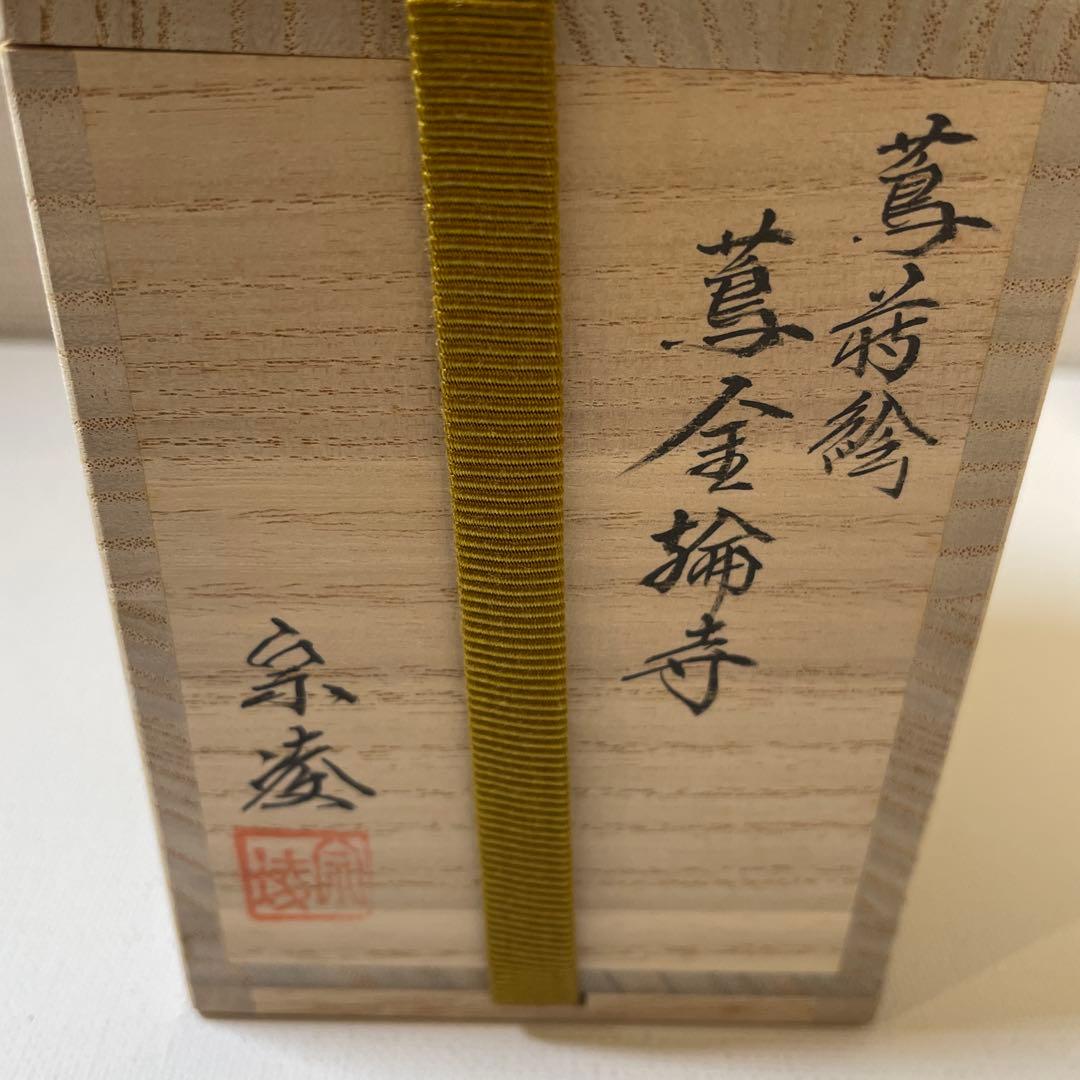 蔦蒔絵
蔦金輪寺
宗凌
宗凌